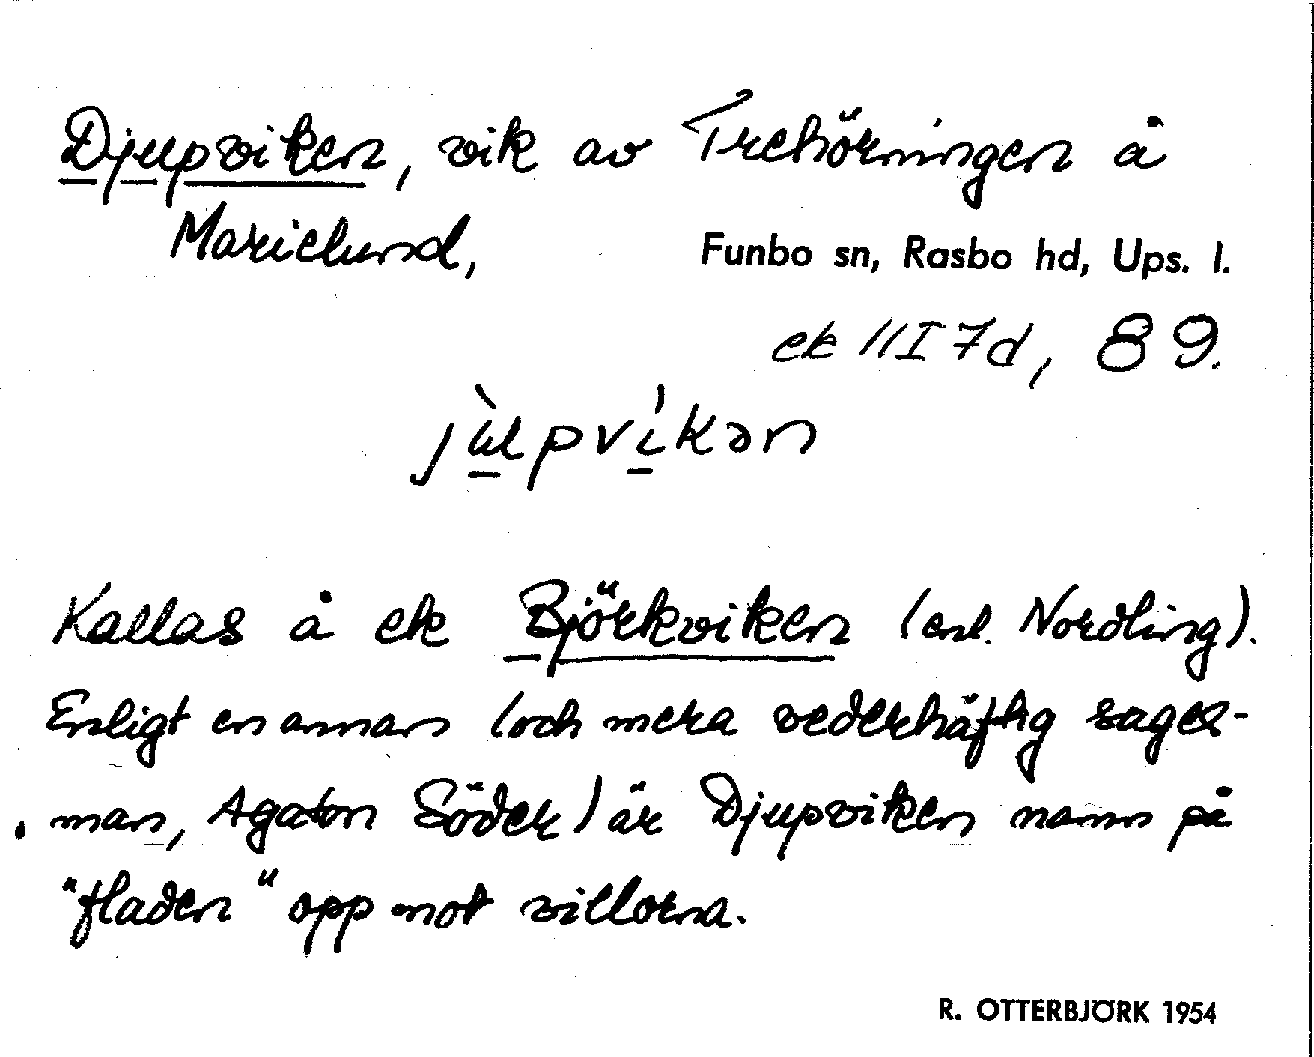 Djupviken, vik av Trehörningen å
Marielund,
Funbo sn, Rasbo hd, Ups. l.
ek 11I7d, 89.
jùpvíkən
Kallas å ek Björkviken (enl. Nordling).
Enligt en annan (och mera vederhäftig sages-
man, Agaton Söder) är Djupviken namn på
"fladen" opp mot villorna.
R. OTTERBJÖRK 1954